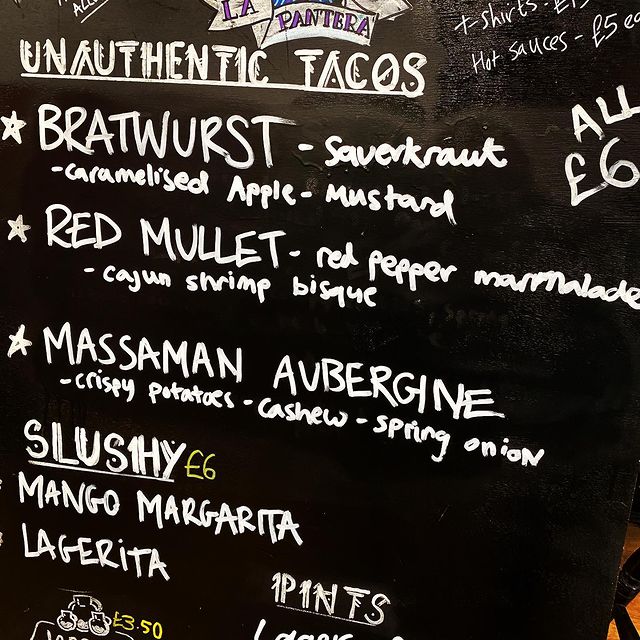 LA PANTERA
T-shirts - £1
Hot sauces - £5 ea
UNAUTHENTIC TACOS
ALL
£6
☆ BRATWURST - Sauerkraut
- caramelised Apple - Mustard
☆ RED MULLET - red pepper marmalade
- cajun shrimp bisque
☆ MASSAMAN AUBERGINE
- crispy potatoes - cashew - spring onion
SLUSHY £6
MANGO MARGARITA
LAGERITA
£3.50
PINTS